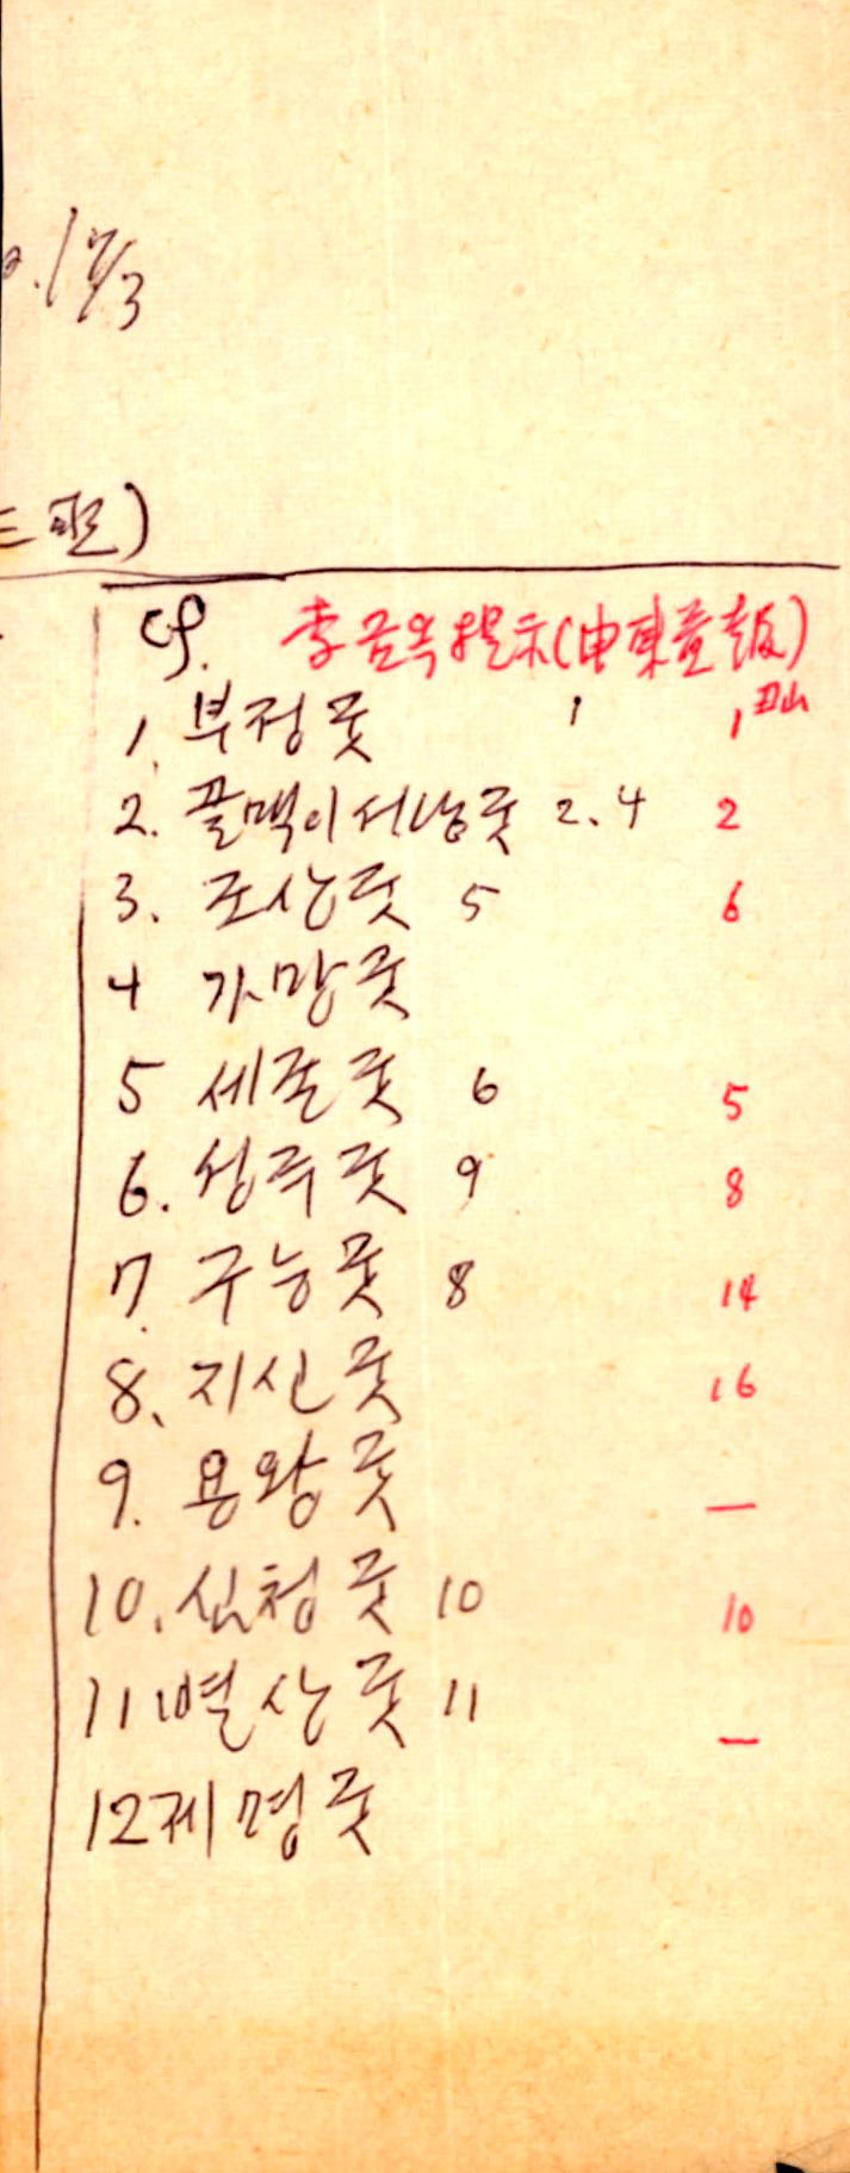 cf. 李금옥提示(申東
1. 부정굿 1 1
2. 골맥이서낭굿 2.4 2
3. 조상굿 5 6
4 가망굿
5 세존굿 6 5
6. 성주굿 9 8
7. 구능굿 8 14
8. 지신굿 16
9. 용왕굿 —
10. 심청굿 10 10
11 별상굿 11 —
12 제명굿